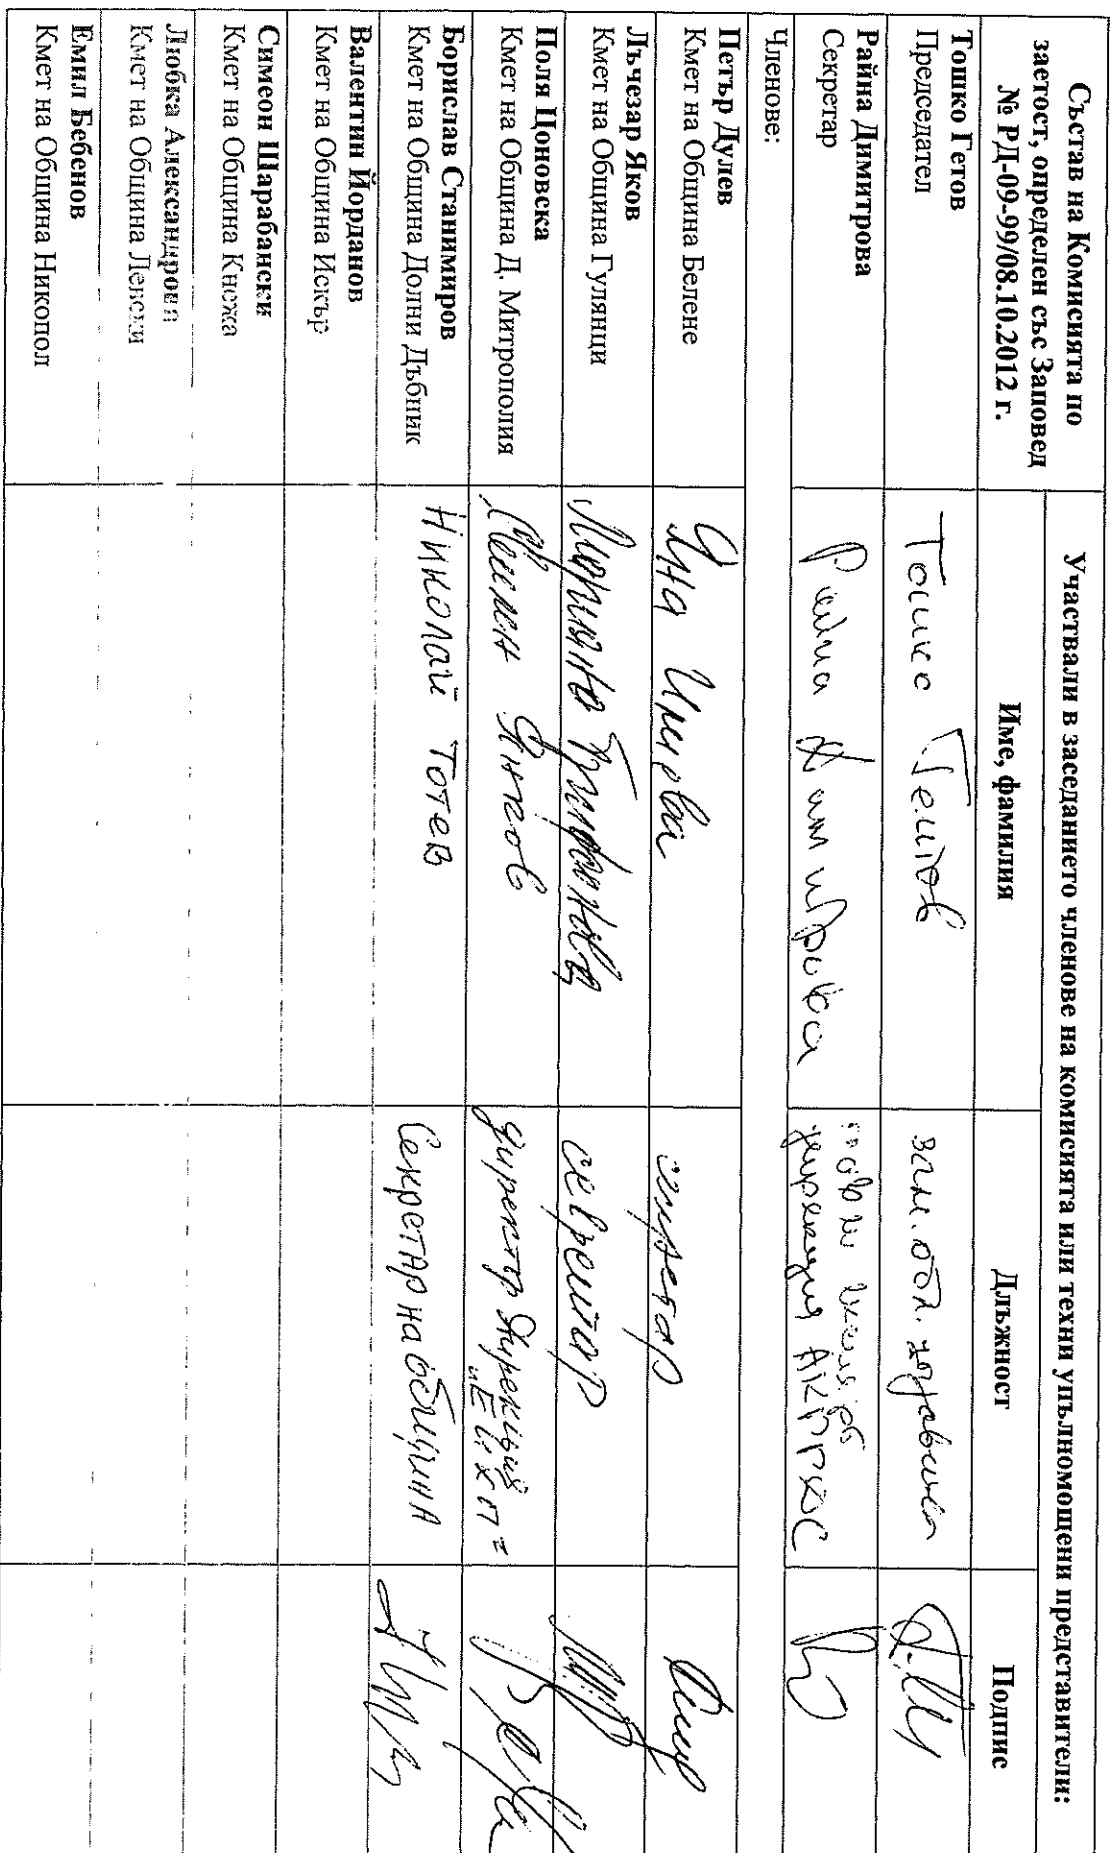 Състав на Комисията по
заетост, определен със Заповед
№ РД-09-99/08.10.2012 г.
Участвали в заседанието членове на комисията или техни упълномощени представители:
Име, фамилия
Длъжност
Подпис
Тошко Гетов
Председател
Тошко Гетов
зам. обл. управител
Райна Димитрова
Секретар
Райна Димитрова
дирекция АКРРДС
Членове:
Петър Дулев
Кмет на Община Белене
Яна
секретар
Лъчезар Яков
Кмет на Община Гулянци
секретар
Поля Цоновска
Кмет на Община Д. Митрополия
Янков
Директор Дирекция
Борислав Станимиров
Кмет на Община Долни Дъбник
Николай Тотев
Секретар на община
Валентин Йорданов
Кмет на Община Искър
Симеон Шарабански
Кмет на Община Кнежа
Любка Александрова
Кмет на Община Левски
Емил Бебенов
Кмет на Община Никопол